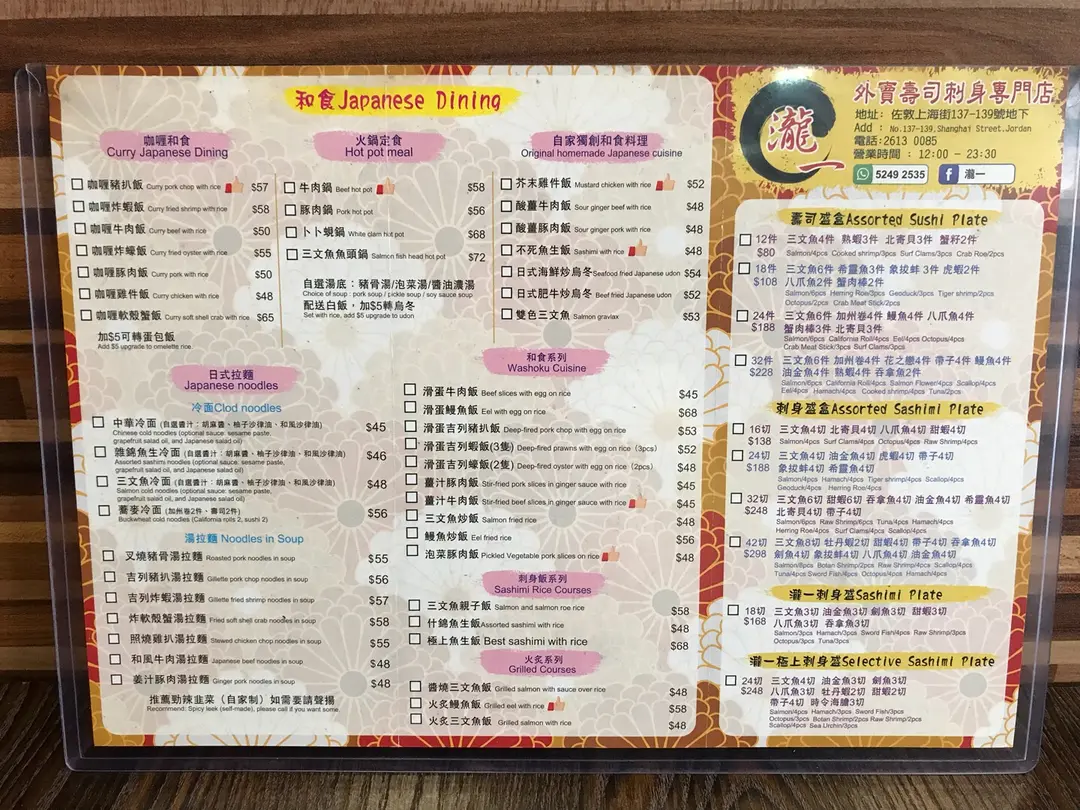 和食Japanese Dining
咖喱和食
Curry Japanese Dining
咖喱豬扒飯 Curry pork chop with rice $57
咖喱炸蝦飯 Curry fried shrimp with rice $58
咖喱牛肉飯 Curry beef with rice $50
咖喱炸蠔飯 Curry fried oyster with rice $55
咖喱豚肉飯 Curry pork with rice $50
咖喱雞件飯 Curry chicken with rice $48
咖喱軟殼蟹飯 Curry soft shell crab with rice $65
加$5可轉蛋包飯
Add $5 upgrade to omelette rice
火鍋定食
Hot pot meal
牛肉鍋 Beef hot pot $58
豚肉鍋 Pork hot pot $56
卜卜蜆鍋 White clam hot pot $68
三文魚魚頭鍋 Salmon fish head hot pot $72
自選湯底：豬骨湯/泡菜湯/醬油濃湯
Choice of soup : pork soup / pickle soup / soy sauce soup
配送白飯，加$5轉烏冬
Set with rice, add $5 upgrade to udon
自家獨創和食料理
Original homemade Japanese cuisine
芥末雞件飯 Mustard chicken with rice $52
酸薑牛肉飯 Sour ginger beef with rice $48
酸薑豚肉飯 Sour ginger pork with rice $48
不死魚生飯 Sashimi with rice $48
日式海鮮炒烏冬Seafood fried Japanese udon $54
日式肥牛炒烏冬 Beef fried Japanese udon $52
雙色三文魚 Salmon graviax $53
日式拉麵
Japanese noodles
冷面Clod noodles
中華冷面 (自選醬汁：胡麻醬、柚子沙律油、和風沙律油) $45
Chinese cold noodles (optional sauce: sesame paste,
grapefruit salad oil, and Japanese salad oil)
雜錦魚生冷面 (自選醬汁：胡麻醬、柚子沙律油、和風沙律油) $46
Assorted sashimi noodles (optional sauce: sesame paste,
grapefruit salad oil, and Japanese salad oil)
三文魚冷面 (自選醬汁：胡麻醬、柚子沙律油、和風沙律油) $48
Salmon cold noodles (optional sauce: sesame paste,
grapefruit salad oil, and Japanese salad oil)
蕎麥冷面 (加州卷2件、壽司2件) $56
Buckwheat cold noodles (California rolls 2, sushi 2)
湯拉麵 Noodles in Soup
叉燒豬骨湯拉麵 Roasted pork noodles in soup $55
吉列豬扒湯拉麵 Gillette pork chop noodles in soup $56
吉列炸蝦湯拉麵 Gillette fried shrimp noodles in soup $57
炸軟殼蟹湯拉麵 Fried soft shell crab noodles in soup $58
照燒雞扒湯拉麵 Stewed chicken chop noodles in soup $55
和風牛肉湯拉麵 Japanese beef noodles in soup $48
姜汁豚肉湯拉麵 Ginger pork noodles in soup $48
推薦勁辣韭菜（自家制）如需要請聲揚
Recommend: Spicy leek (self-made), please call if you want some.
和食系列
Washoku Cuisine
滑蛋牛肉飯 Beef slices with egg on rice $45
滑蛋鰻魚飯 Eel with egg on rice $68
滑蛋吉列豬扒飯 Deep-fired pork chop with egg on rice $53
滑蛋吉列蝦飯(3隻) Deep-fired prawns with egg on rice (3pcs) $52
滑蛋吉列蠔飯(2隻) Deep-fired oyster with egg on rice (2pcs) $48
薑汁豚肉飯 Stir-fried pork slices in ginger sauce with rice $45
薑汁牛肉飯 Stir-fried beef slices in ginger sauce with rice $45
三文魚炒飯 Salmon fried rice $48
鰻魚炒飯 Eel fried rice $56
泡菜豚肉飯 Pickled Vegetable pork slices on rice $48
刺身飯系列
Sashimi Rice Courses
三文魚親子飯 Salmon and salmon roe rice $58
什錦魚生飯Assorted sashimi with rice $48
極上魚生飯 Best sashimi with rice $68
火炙系列
Grilled Courses
醬燒三文魚飯 Grilled salmon with sauce over rice $48
火炙鰻魚飯 Grilled eel with rice $58
火炙三文魚飯 Grilled salmon with rice $48
瀧一
外賣壽司刺身專門店
地址：佐敦上海街137-139號地下
Add : No.137-139.Shanghai Street.Jordan
電話:2613 0085
營業時間：12:00 - 23:30
5249 2535 f 瀧一
壽司盛盒Assorted Sushi Plate
12件 三文魚4件 熟蝦3件 北寄貝3件 蟹籽2件
$80 Salmon/4pcs Cooked shrimp/3pcs Surf Clams/3pcs Crab Roe/2pcs
18件 三文魚6件 希靈魚3件 象拔蚌3件 虎蝦2件
$108 八爪魚2件 蟹肉棒2件
Salmon/6pcs Herring Roe/3pcs Geoduck/3pcs Tiger shrimp/2pcs
Octopus/2pcs Crab Meat Stick/2pcs
24件 三文魚6件 加州卷4件 鰻魚4件 八爪魚4件
$188 蟹肉棒3件 北寄貝3件
Salmon/6pcs California Roll/4pcs Eel/4pcs Octopus/4pcs
Crab Meat Stick/3pcs Surf Clams/3pcs
32件 三文魚6件 加州卷4件 花之戀4件 帶子4件 鰻魚4件
$228 油金魚4件 熟蝦4件 吞拿魚2件
Salmon/6pcs California Roll/4pcs Salmon Flower/4pcs Scallop/4pcs
Eel/4pcs Hamachi/4pcs Cooked shrimp/4pcs Tuna/2pcs
刺身盛盒Assorted Sashimi Plate
16切 三文魚4切 北寄貝4切 八爪魚4切 甜蝦4切
$138 Salmon/4pcs Surf Clams/4pcs Octopus/4pcs Raw Shrimp/4pcs
24切 三文魚4切 油金魚4切 虎蝦4切 帶子4切
$188 象拔蚌4切 希靈魚4切
Salmon/4pcs Hamachi/4pcs Tiger shrimp/4pcs Scallop/4pcs
Geoduck/4pcs Herring Roe/4pcs
32切 三文魚6切 甜蝦6切 吞拿魚4切 油金魚4切 希靈魚4切
$248 北寄貝4切 帶子4切
Salmon/6pcs Raw Shrimp/6pcs Tuna/4pcs Hamachi/4pcs
Herring Roe/4pcs Surf Clams/4pcs Scallop/4pcs
42切 三文魚8切 牡丹蝦2切 甜蝦4切 帶子4切 吞拿魚4切
$298 劍魚4切 象拔蚌4切 八爪魚4切 油金魚4切
Salmon/8pcs Botan Shrimp/2pcs Raw Shrimp/4pcs Scallop/4pcs
Tuna/4pcs Sword Fish/4pcs Octopus/4pcs Hamachi/4pcs
瀧一刺身盛Sashimi Plate
18切 三文魚3切 油金魚3切 劍魚3切 甜蝦3切
$168 八爪魚3切 吞拿魚3切
Salmon/3pcs Hamachi/3pcs Sword Fish/4pcs Raw Shrimp/3pcs
Octopus/3pcs Tuna/3pcs
瀧一極上刺身盛Selective Sashimi Plate
24切 三文魚4切 油金魚3切 劍魚3切
$248 八爪魚3切 牡丹蝦2切 甜蝦2切
帶子4切 時令海膽3切
Salmon/4pcs Hamachi/3pcs Sword Fish/3pcs
Octopus/3pcs Botan Shrimp/2pcs Raw Shrimp/2pcs
Scallop/4pcs Sea Urchin/3pcs